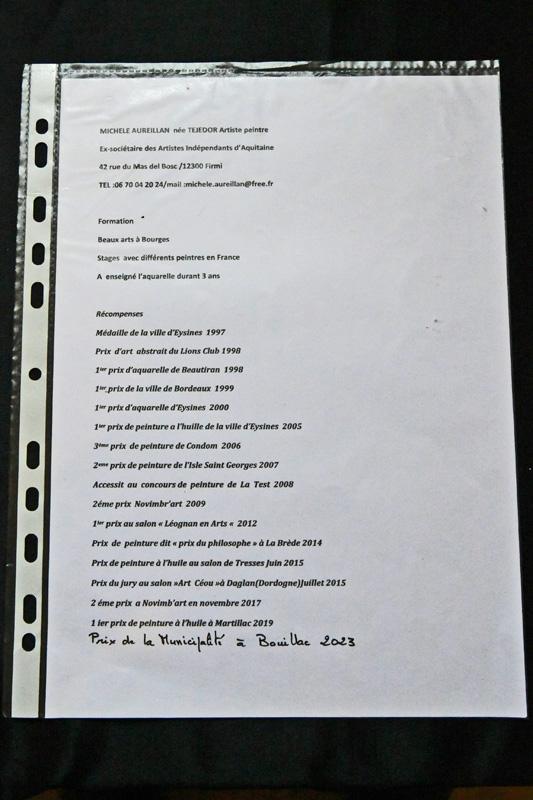 MICHELE AUREILLAN née TEJEDOR Artiste peintre
Ex-sociétaire des Artistes Indépendants d'Aquitaine
42 rue du Mas del Bosc /12300 Firmi
TEL :06 70 04 20 24/mail :michele.aureillan@free.fr
Formation
Beaux arts à Bourges
Stages avec différents peintres en France
A enseigné l'aquarelle durant 3 ans
Récompenses
Médaille de la ville d'Eysines 1997
Prix d'art abstrait du Lions Club 1998
1ier prix d'aquarelle de Beautiran 1998
1ier prix de la ville de Bordeaux 1999
1ier prix d'aquarelle d'Eysines 2000
1ier prix de peinture a l'huille de la ville d'Eysines 2005
3ème prix de peinture de Condom 2006
2eme prix de peinture de l'Isle Saint Georges 2007
Accessit au concours de peinture de La Test 2008
2éme prix Novimbr'art 2009
1ier prix au salon « Léognan en Arts « 2012
Prix de peinture dit « prix du philosophe » à La Brède 2014
Prix de peinture à l'huile au salon de Tresses Juin 2015
Prix du jury au salon »Art Céou »à Daglan(Dordogne)Juillet 2015
2 éme prix a Novimb'art en novembre 2017
1 ier prix de peinture à l'huile à Martillac 2019
Prix de la Municipalité à Bouillac 2023